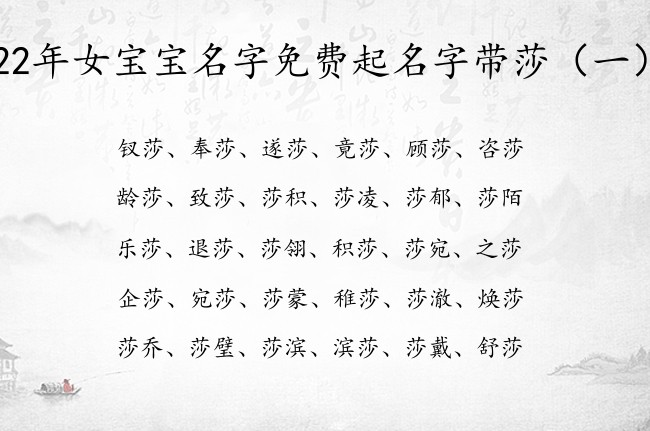 22年女宝宝名字免费起名字带莎（一）
钗莎、奉莎、遂莎、竟莎、顾莎、咨莎
龄莎、致莎、莎积、莎凌、莎郁、莎陌
乐莎、退莎、莎翎、积莎、莎宛、之莎
企莎、宛莎、莎蒙、稚莎、莎澈、焕莎
莎乔、莎璧、莎滨、滨莎、莎戴、舒莎